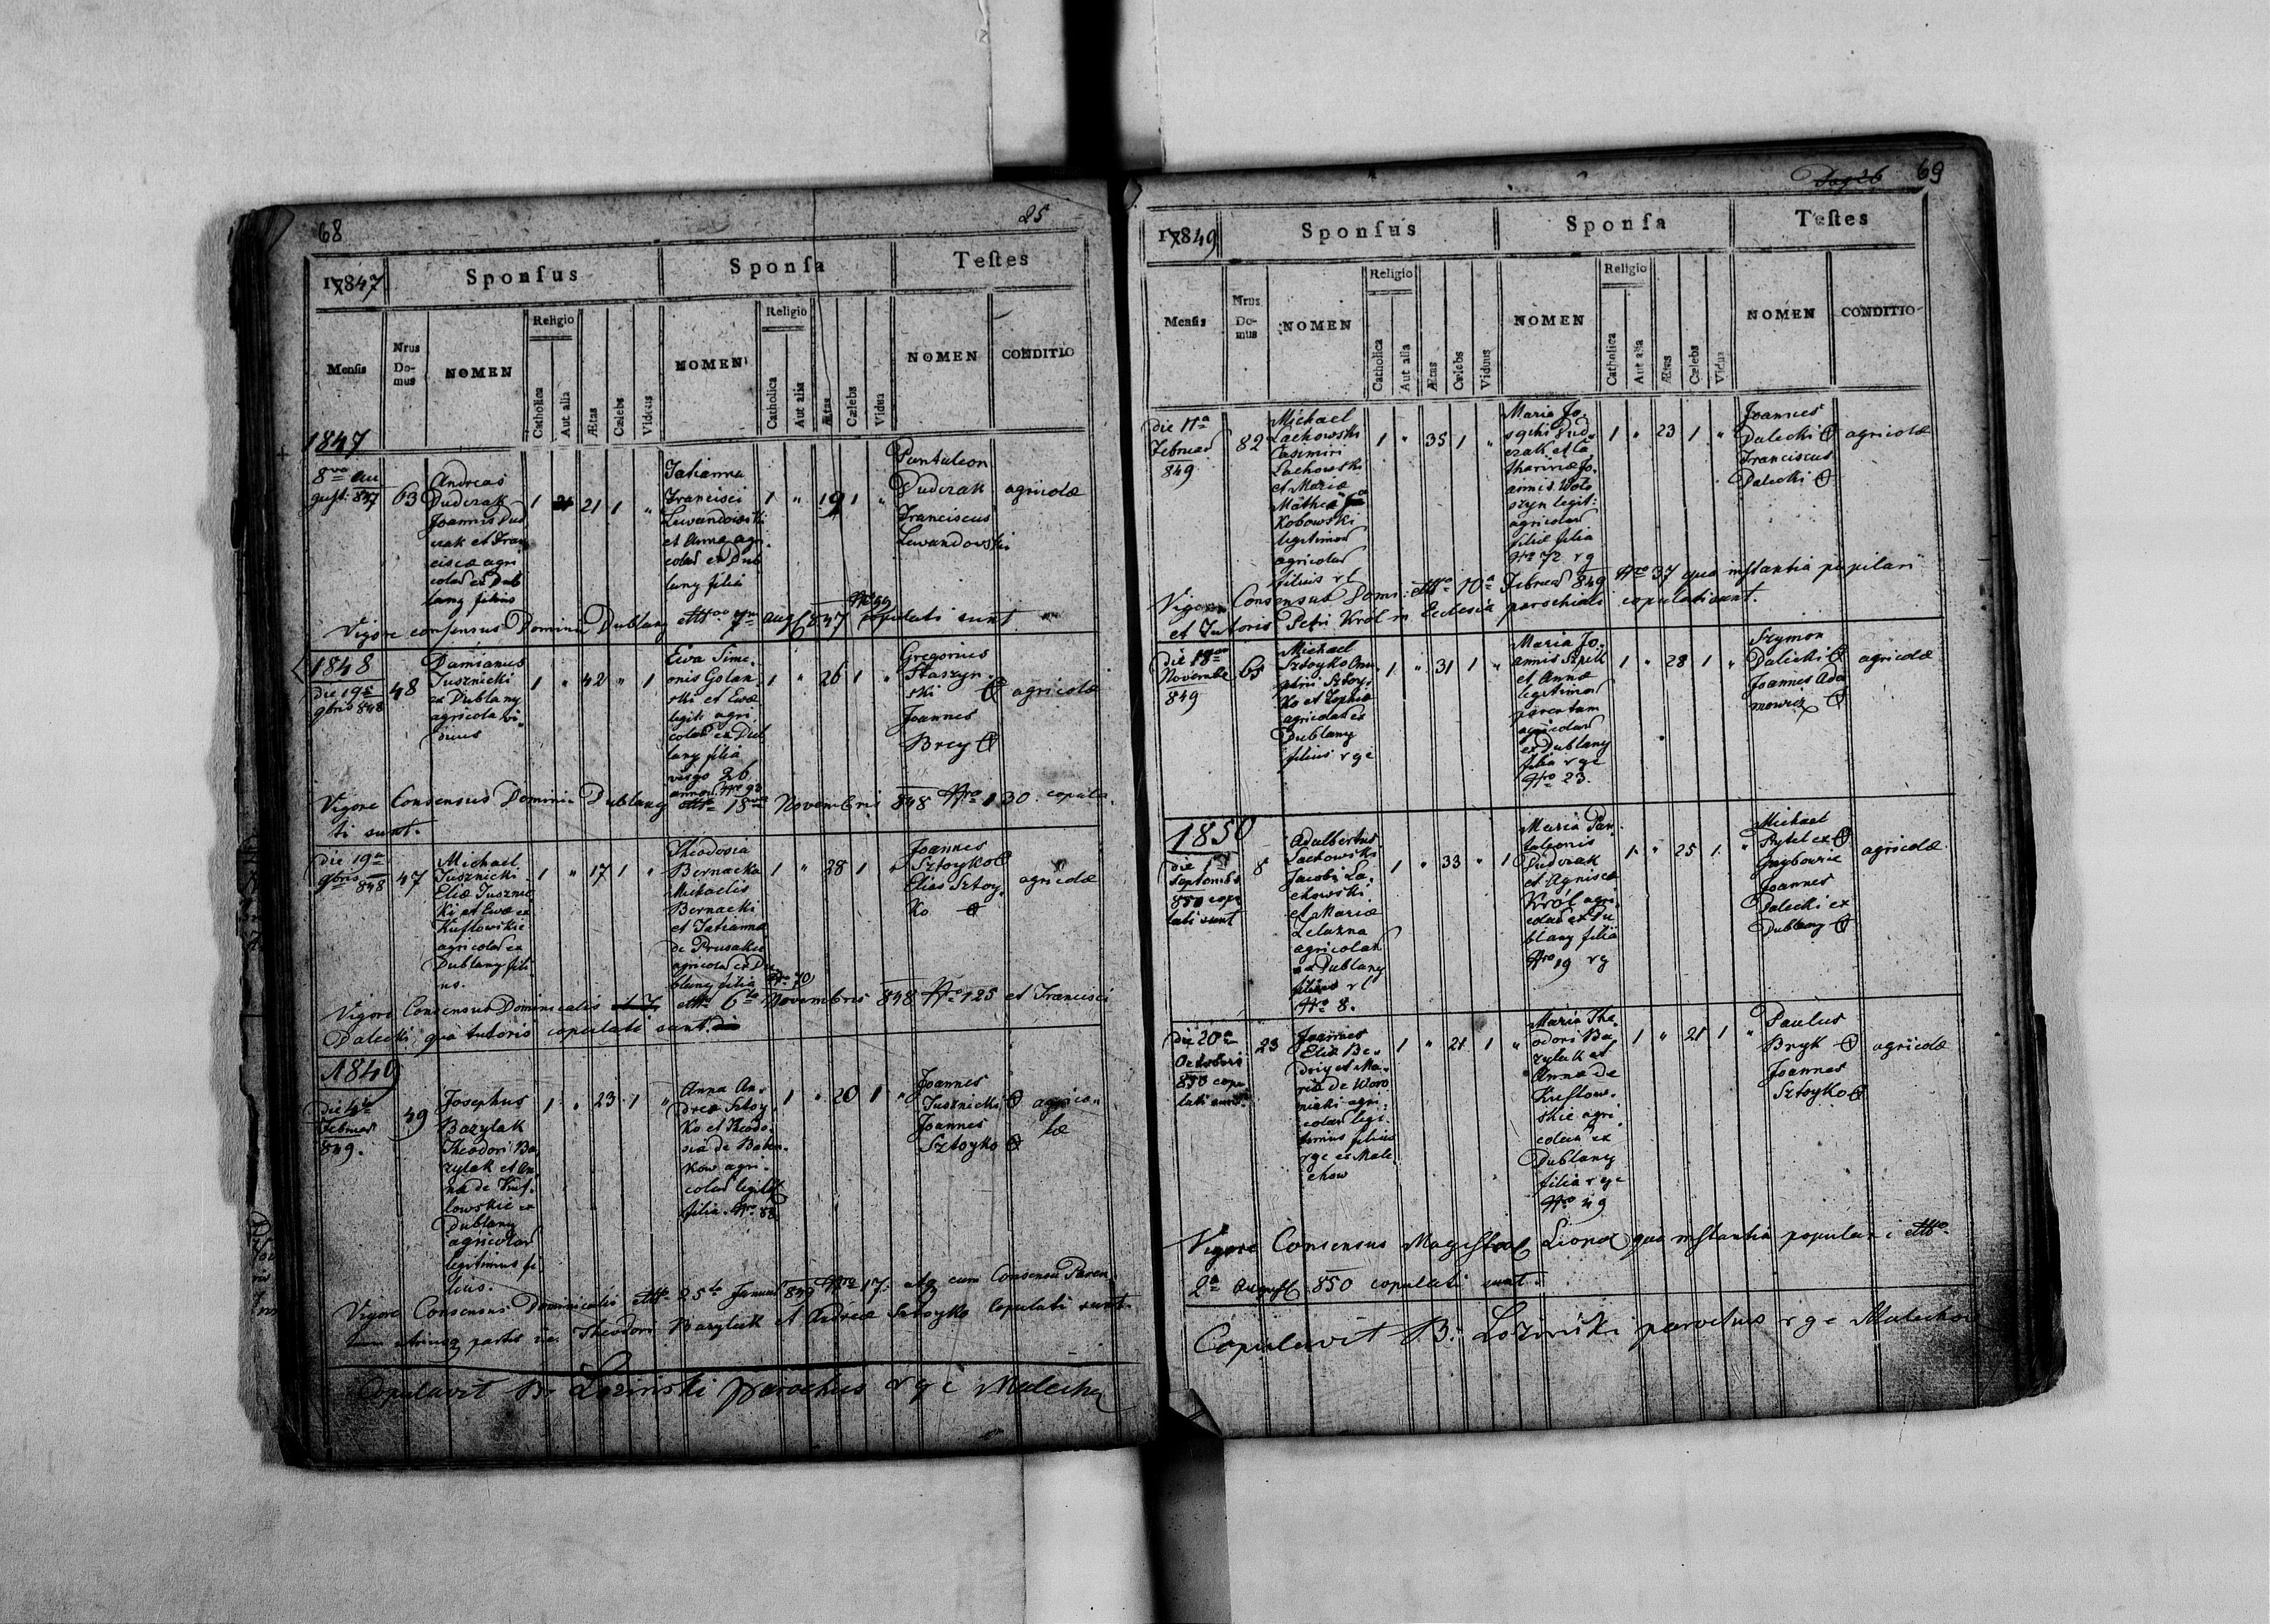 68
25
1847
Sponſus
Sponſa
Teſtes
Menſis
Nrus Do-mus
NOMEN
Religio
Catholica
Aut alia
Ætas
Cælebs
Viduus
NOMEN
Religio
Catholica
Aut alia
Ætas
Cælebs
Vidua
NOMEN
CONDITIO
1847
8va Au
gust: 847
63
Andreas
Dudczak
Joannis Dud
czak et Fran
cisca agri
colar ex Dub
lany filius
1
21
1
"
Tatianna
Francisci
Lewandowski
et Anna agri
colar ex Dub
lany filia
1
"
19
1
"
Pantaleon
Dudczak
Franciscus
Lewandowski
agricolæ
Vigore consensus Dominii Dublany 847 copulati sunt
1848
die 19a
9bris 848
48
Damianus
Jusznicki
ex Dublany
agricola vi-
duus
1
"
42
"
1
Ewa Sime-
onis Golan
ski et Ewæ
legit: agri
colar ex Dub
lany filia
virgo 26
annor Nro 93
1
"
26
1
"
Gregorius
Staszyn-
ski
Joannes
Brey
agricolæ
Vigore Consensus Dominii Dublany 18va Novembris 848 Nro 130 copula-
ti sunt.
die 19a
9bris 848
47
Michael
Jusznicki
Eliæ Juszni
ki et Ewæ ex
Kustowskie
agricolar ex
Dublany fili-
us.
1
"
17
1
"
Theodosia
Bernacka
Michaelis
Bernacki
et Tatianna
de Prusakie
agricolar ex Du
blany filia Nro 70
1
"
28
1
"
Joannes
Sztoyko
Elias Sztoy-
ko
agricolæ
Vigore Consensus Dominicalis 6ta Novembris 848 Nro 125 et Francisci
Dalecki qua tutoris copulati sunt.
1849
die 4ta
Februar
849.
49
Josephus
Bazylak
Theodori Ba
zylak et An
na de Kus-
lowskie ex
Dublany
agricolar
legitimus fi-
lius.
1
"
23
1
"
Anna An-
drea Sztoy
ko et Theodo-
sia de Baba-
kow agri-
colar legit
filia. Nro 88
1
"
20
1
"
Joannes
Jusznicki
Joannes
Sztoyko
agrico-
læ
Vigore Consensus Dominicalis 25ta Januar 849 Nro 17. atq cum Consensu Paren
tum utriusq partis Theodori Bazylak et Andreæ Sztoyko Copulati sunt.
Copulavit B. Loziński parochus r g c Malecho
Pag 26
69
1849
Sponſus
Sponſa
Teſtes
Menſis
Nrus Do-mus
NOMEN
Religio
Catholica
Aut alia
Ætas
Cælebs
Viduus
NOMEN
Religio
Catholica
Aut alia
Ætas
Cælebs
Vidua
NOMEN
CONDITIO
die 11a
Februar
849
82
Michael
Lachowski
Casimiri
Lachowski
et Mariæ
Mathiæ
Kobowski
legitimus
agricolar
filius r l
1
"
35
1
"
Maria Jo-
sephi Dud
czak et Ca
tharinæ Jo-
annis Woło
szyn legit:
agricolar
filia
Nro 72 r g
1
"
23
1
"
Joannes
Dalecki
Franciscus
Dalecki
agricolæ
Vigore Consensus Domi: 10a Februar 849 Nro 37 qua instantia pupilari
et Tutoris Petri Król in Ecclesia parochiali copulati sunt.
die 18va
Novembr
849
65
Michael
Sztoyko
Sztoy-
ko et Sophia
agricolar ex
Dublany
filius r g c
1
"
31
1
"
Maria Jo-
annis Szpek
et Annæ
legitimor
parentum
agricolar
ex Dublany
filia r g c
Nro 23.
1
"
28
1
"
Szymon
Dalecki
Joannes Ada
mowicz
agricolæ
1850
die 1a
Septembr
850 copu
lati sunt
8
Adalbertus
Lachowski
Jacobi La-
chowski
et Mariæ
Lelazna
agricolar
ex Dublany
filius r l
Nro 8.
1
"
33
"
1
Maria Pan-
taleonis
Dudczak
et Agniscæ
Król agri-
colar ex Du
blany filia
Nro 19 r g
1
"
25
1
"
Michael
Pytel ex
Grzybowic
Joannes
Dalecki ex
Dublany
agricolæ
die 20a
Octobris
850 copu-
lati sunt
23
Joannes
Eliæ Be-
driy et Ma-
ria de Woro
niaki agri-
colar legi-
timus filius
r g c ex Male
chow
1
"
21
1
"
Maria The-
odori Ba
zylak et
Anna de
Kustow-
skie agri-
colar ex
Dublany
filia r g c
Nro 49
1
"
21
1
"
Paulus
Bryk
Joannes
Sztoyko
agricolæ
Vigore Consensus Magistrat Leopol qua instantia pupilar
2a August 850 copulati sunt.
Copulavit B. Loziński parochus r g c Malechow